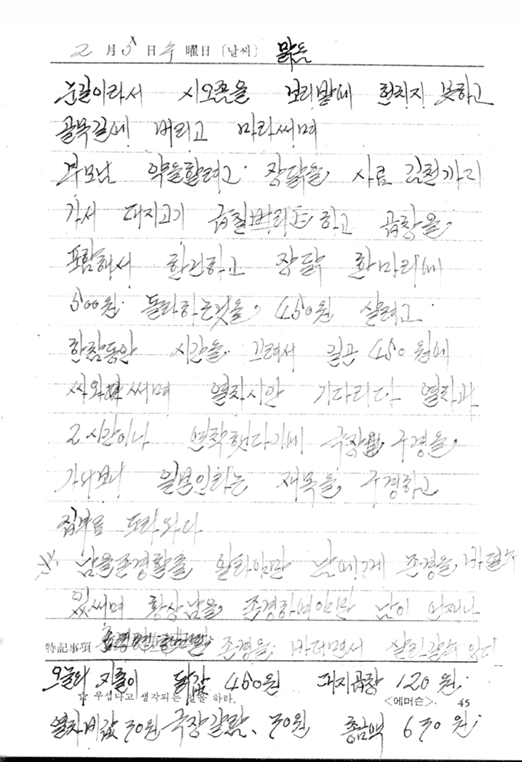 2月 5日 수 曜日 〔날씨〕 맑음
눈길이라서 시오쫌을 보리밭에 헌치지 못하고
골목길에 버리고 마라써며
부모님 약을할려고 장닭을, 사료 김천까지
가서 대지고기 하고 곱창을,
포함해서 한건하고 장닭 한마리에
500원 돌라하는것을, 450원 살려고
한참동안 시간을 끄려서 결국 450원에
싸와 써며 열차시간 기다리다 열차가
2시간이나 연착햇다기에 극장 구경을,
가서보니 일본인하는 재목을, 구경하고
집부로 도라와다
남을존경할줄 알라야만 남에게 존경을, 바필수
있써며 항상남을, 존경하여야만 남이 언재나
特記事項 존경을, 바더면서 살린감이 있다
오늘의 지출이 닭값 450원 대지곱창 120원.
무섭다고 생각되는 일을 하라. 〈에머슨〉 45
열차비값 30원 극장갑 30원 총금액 630원.